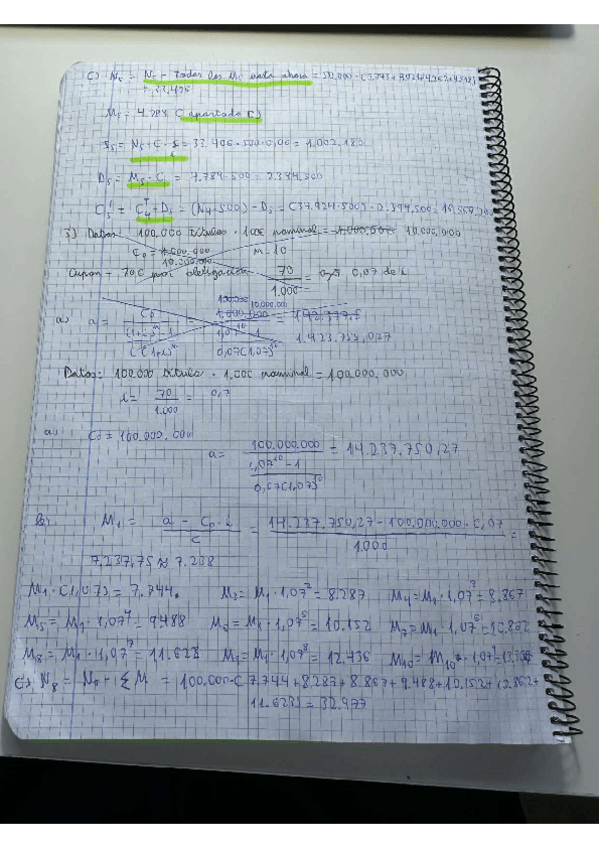 c) N₅ = N₅ - todas las M hasta ahora = 50,000 - C
= 33,406
M₅ = 4.789 C apartado b)
I₅ = N₅ · C · i = 33.406 · 500 · 0,06 = 1.002.180
D₅ = M₅ · C = 4.789 · 500 = 2.394.500
C₅ = C₄ - D₅ = (N₄ · 500) - D₅ = (34.924 · 500) - 2.394.500 =
3) Datos: 100,000 títulos · 100€ nominal = 1.000.000 10.000,000
C₀ = 1.000.000 n = 10
10.000.000
Cupon = 70€ por obligación 70/1.000 = 0,07 de i
a) a = C₀/((1+i)ⁿ - 1)/(i(1+i)ⁿ) = 10.000.000
1.000.000
0,07(1,07)¹⁰
1.423.775,027
Datos: 100.000 títulos · 1.00€ nominal = 100.000,000
i = 70/1.000 = 0,7
a) C₀ = 100.000,000
a = 100.000.000/(1,07¹⁰ - 1)/(0,07(1,07)¹⁰) = 14.237.750,27
b) M₁ = (a - C₀ · i)/C = (14.237.750,27 - 100.000.000 · 0,07)/1.000 =
7.237,75 ≈ 7.238
M₁ · (1,07) = 7.744. M₃ = M₁ · 1,07² = 8.287 M₄ = M₁ · 1,07³ = 8.867
M₅ = M₁ · 1,07⁴ = 9488 M₆ = M₁ · 1,07⁵ = 10.152 M₇ = M₁ · 1,07⁶ = 10.862
M₈ = M₁ · 1,07⁷ = 11.623 M₉ = M₁ · 1,07⁸ = 12.436 M₁₀ = M₁₀ · 1,07⁹ =
c) N₈ = N₀ - Σ M = 100.000 - C 7.744 + 8.287 + 8.867 + 9.488 + 10.152 + 10.862 +
11.623) = 32.977